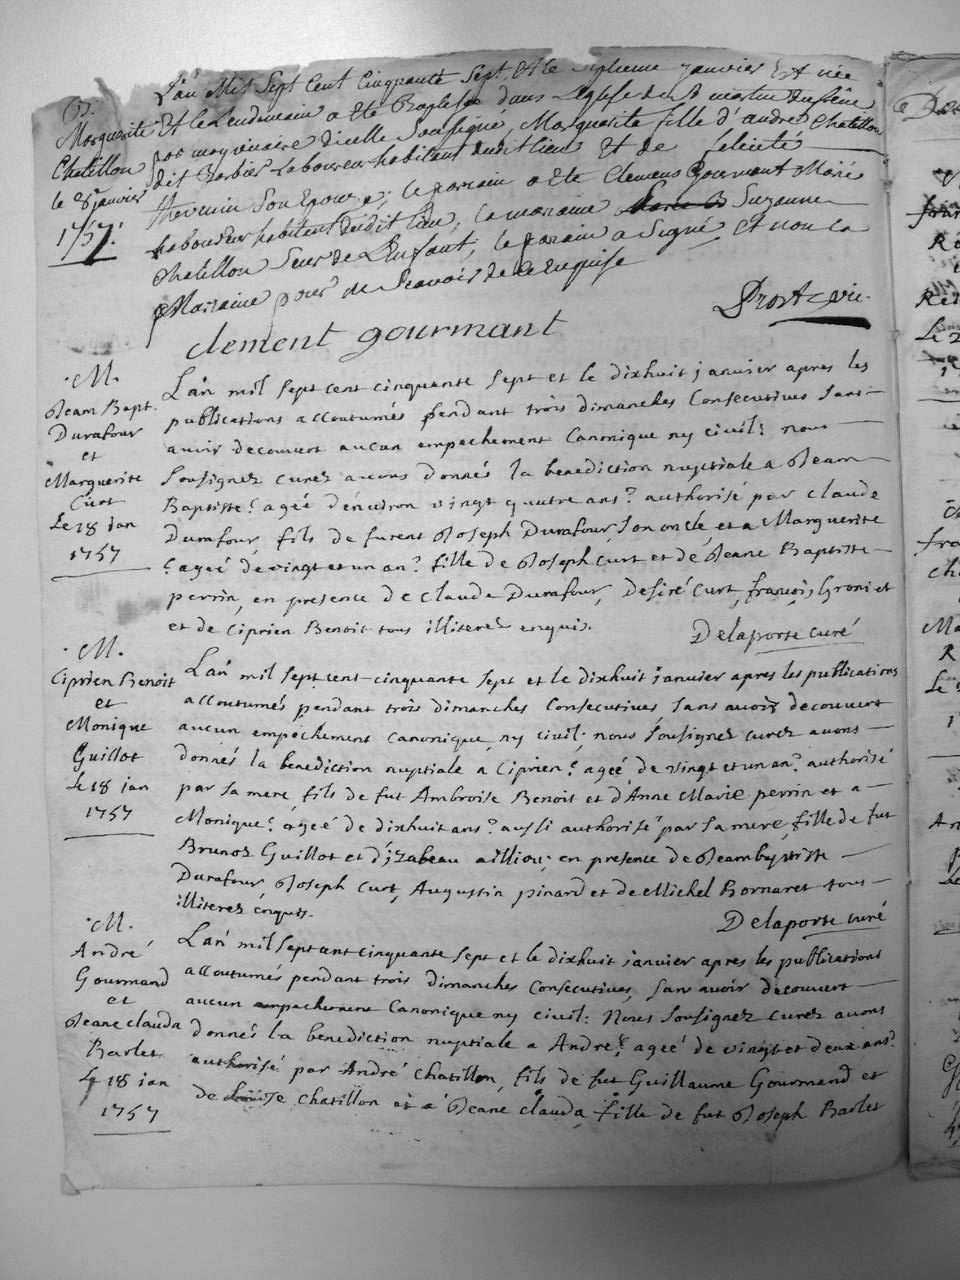 B.
Marguerite
Chatillon
le 8 janvier
1757.
L'an Mil Sept Cent Cinquante Sept, et le septieme janvier Est née
Et le Lendemain a ete Baptisée dans L'eglise de St martin du frene
par moy vicaire dicelle Soussigné, Marguerite fille d'andré Chatillon
dit Barbier Laboureur habitant dudit lieu Et de felicité
thevenin Son Epouse; le parrain a ete Clemens Gourmant Marié
Laboureur habitant dudit lieu, la maraine Suzanne
Chatillon Seur de L'enfant; le parain a Signé Et non La
Marraine pour ne Scavoir de ce enquise
Prost vic.
clement gourmant
M.
Jeam Bapt.
Durafour
et
Marguerite
Curt
Le 18 jan
1757
L'an mil sept cent cinquante sept et le dixhuit janvier apres les
publications accoutumés pendant trois dimanches Consecutives Sans
avoir decouvert aucun empechement Canonique ny civil: nous
Soussignez curez avons donnés la benediction nuptiale a Jeam
Baptiste: ageé d'environ vingt quatre ans? authorisé par claude
Durafour, fils de furent Joseph Durafour, Son oncle et a Marguerite
: ageé de vingt et un an? fille de Joseph Curt et de Jeane Baptiste
perrin, en presence de claude Durafour, Desiré Curt, françois Groni et
et de Ciprien Benoit tous illiterez enquis.
Delaporte curé
M.
Ciprien Benoit
et
Monique
Guillot
Le 18 jan
1757
L'an mil sept cent cinquante sept et le dixhuit janvier apres les publications
accoutumés pendant trois dimanches Consecutives, Sans avoir decouvert
aucun empechement canonique, ny civil: nous Soussignez curez avons
donnés la benediction nuptiale a Ciprien: ageé de vingt et un an? authorisé
par sa mere, fils de fut Ambroise Benoit et d'Anne Marie perrin et a
Monique: ageé de dixhuit ans? aussi authorisé par sa mere, fille de fut
Brunoz Guillot et d'izabeau aillior; en presence de Jeambaptiste
Durafour, Joseph Curt, Augustin pinard et de Michel Bornaret tous
illiterez enquis.
Delaporte curé
M.
André
Gourmand
et
Jeane clauda
Barlet
Le 18 jan
1757
L'an mil sept cent cinquante sept et le dixhuit janvier apres les publications
accoutumés pendant trois dimanches Consecutives, Sans avoir decouvert
aucun empechement Canonique ny civil: Nous Soussignez curez avons
donnés la benediction nuptiale a André: ageé de vingt et deux ans?
authorisé par André Chatillon, fils de fut Guillaume Gourmand et
de Loüise Chatillon et a Jeane clauda, fille de fut Joseph Barlet